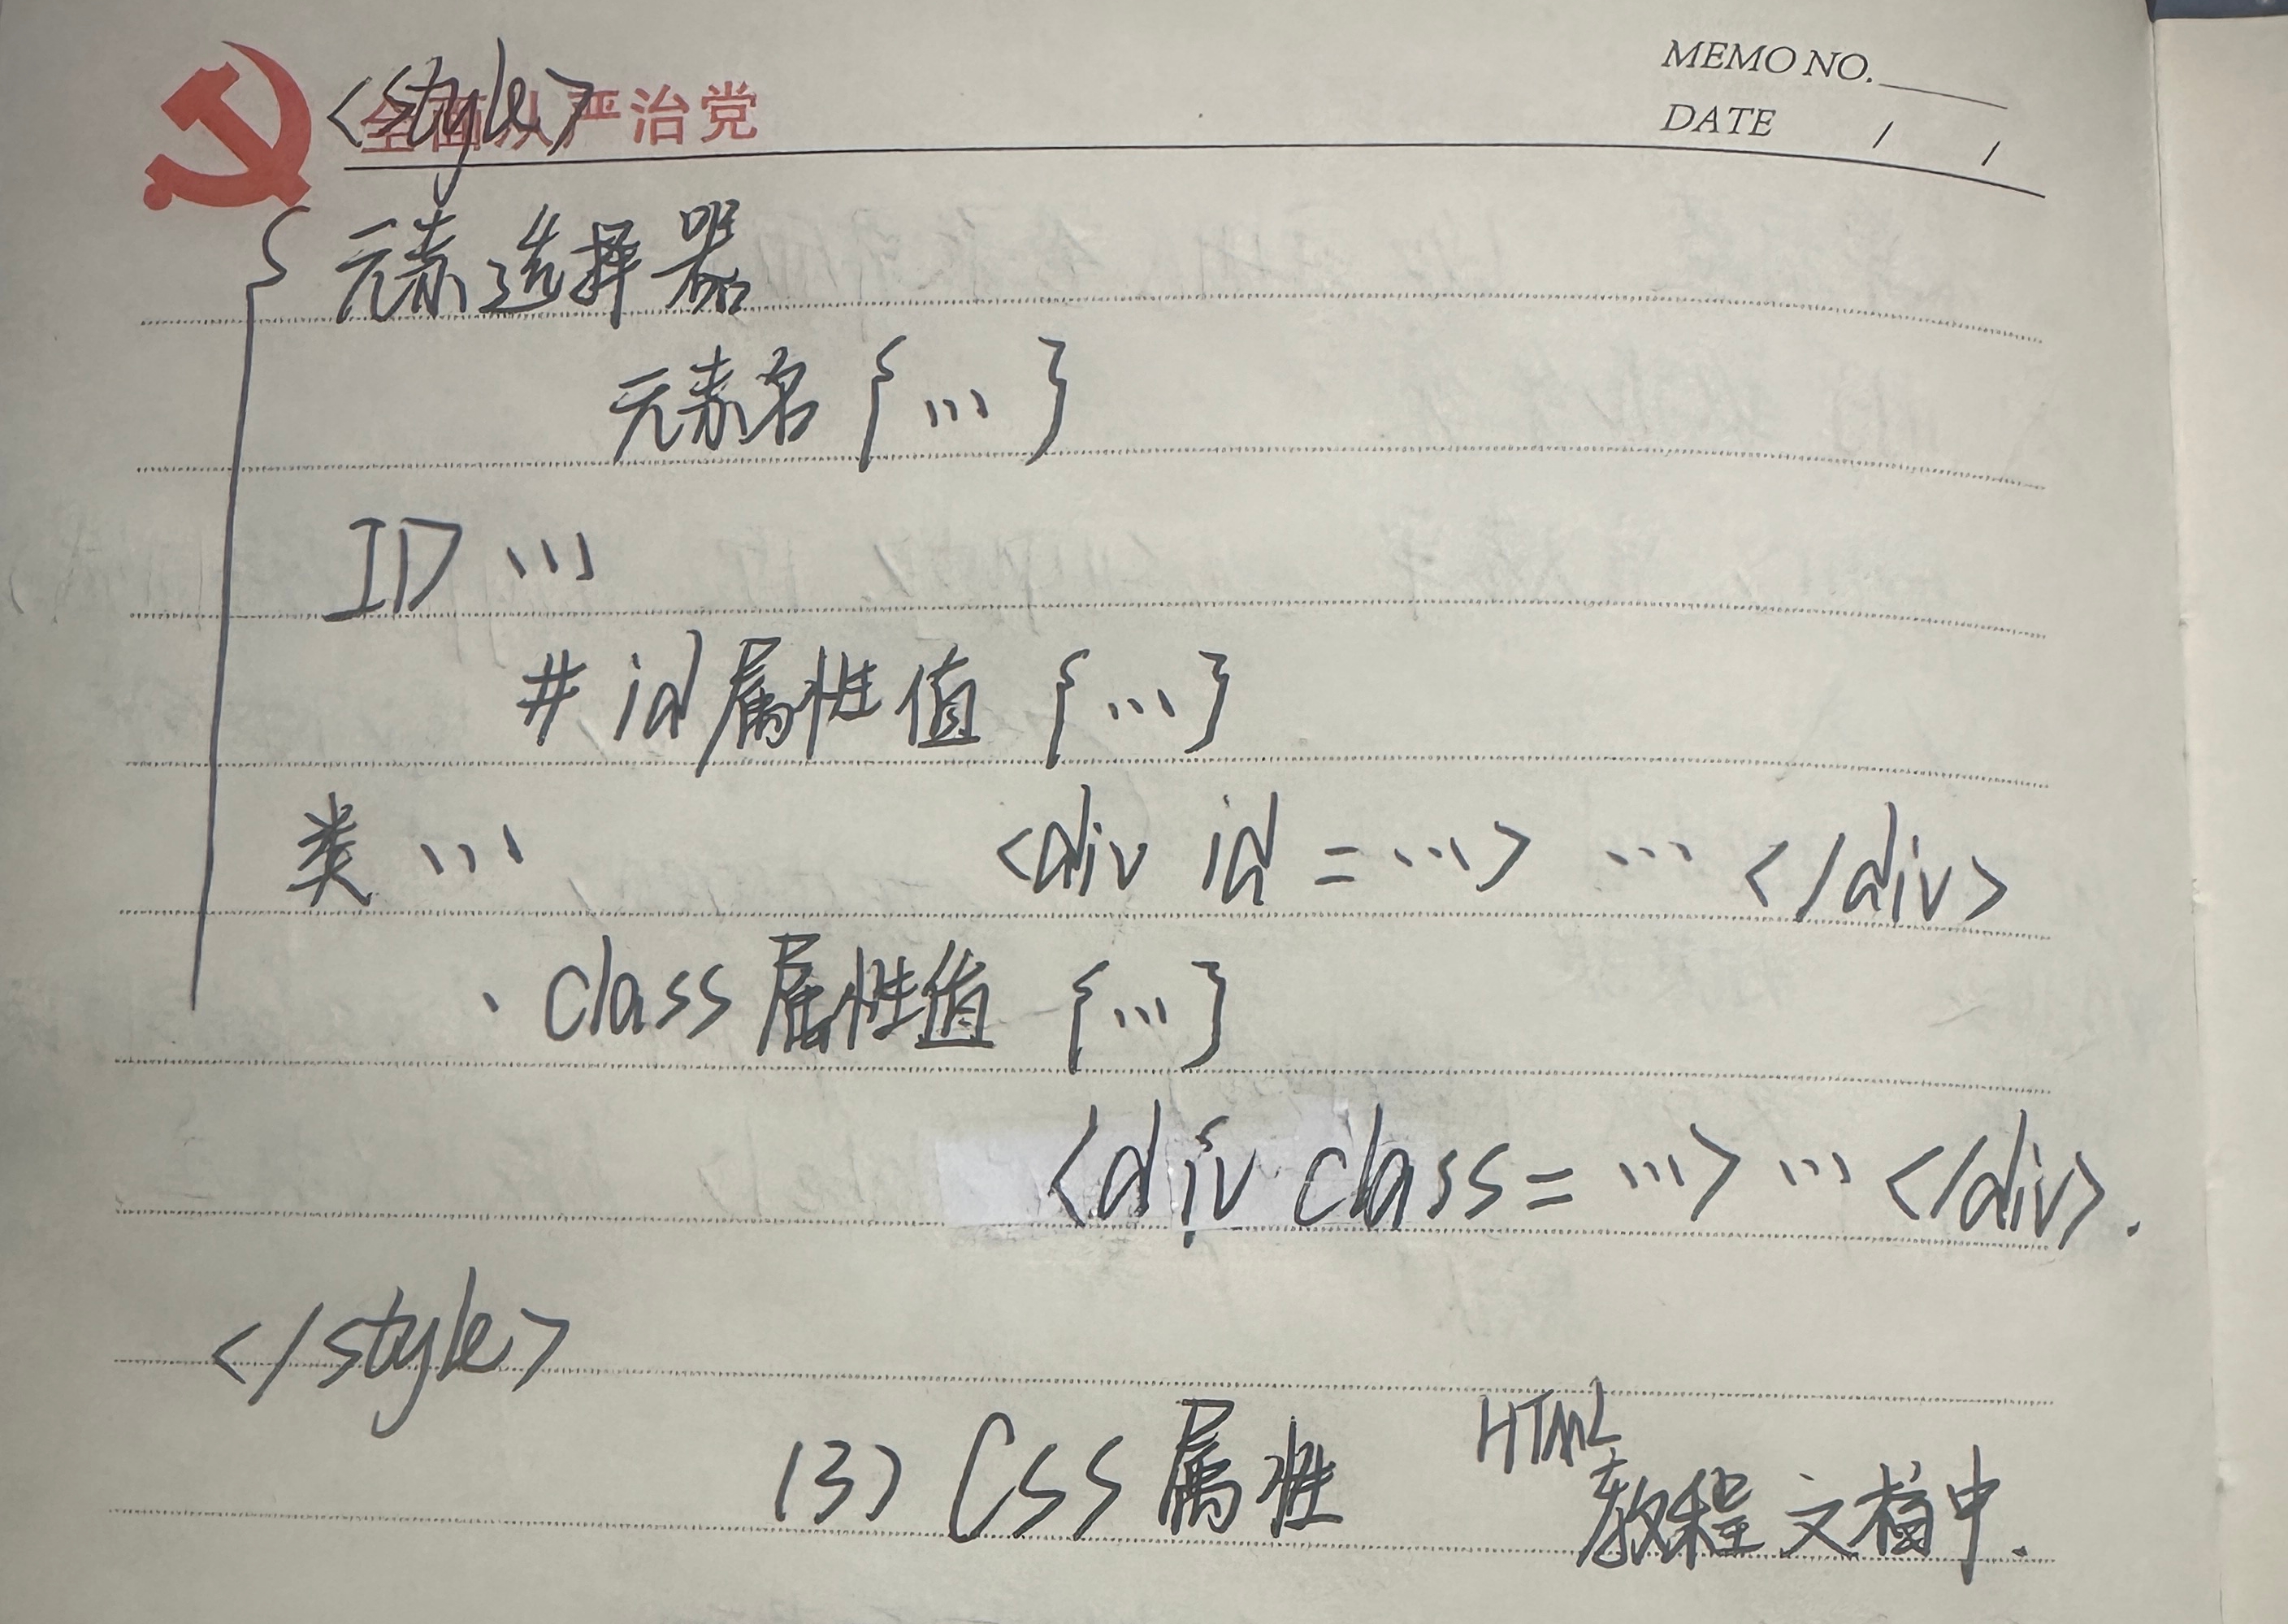 MEMO NO.
全面从严治党
<style>
DATE / /
元素选择器
元素名 {...}
ID ...
# id属性值 {...}
类 ...
<div id = ...> ... </div>
. class 属性值 {...}
<div class = ...> ... </div>.
</style>
(3) CSS 属性
HTML
教程文档中.